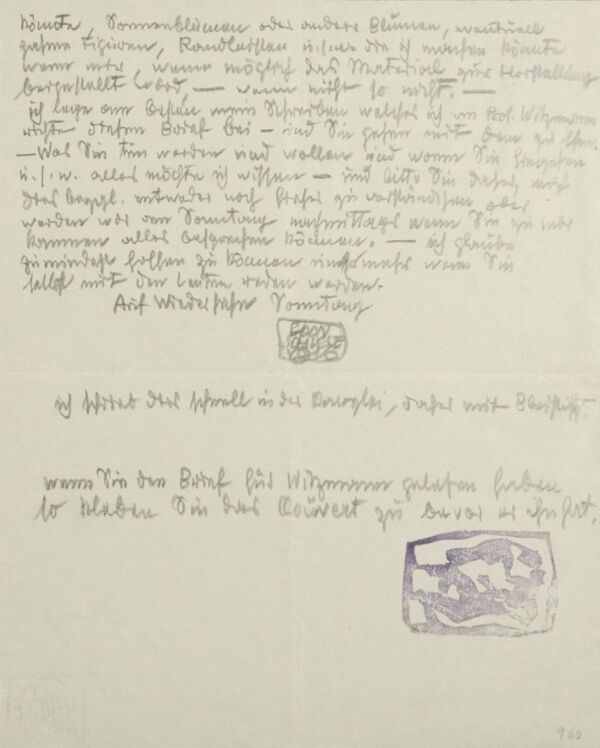 könnte, Sonnenblumen oder andere Blumen, eventuell
ganze Figuren, Randleisten u.s.w. die ich machen könnte
wenn mir, wenn möglich das Material zur Herstellung
beigestellt wird, — wenn nicht so nicht. —
ich lege am besten mein Schreiben welches ich an Prof. Witzmann
richte diesem Brief bei — und Sie gehen mit dem zu ihm.
— Was Sie tun werden und wollen und wann Sie hingehen
u.s.w. alles möchte ich wissen — und bitte Sie daher, mich
diesbezgl. entweder noch früher zu verständigen oder
werden wir am Sonntag nachmittags wenn Sie zu mir
kommen alles besprechen können. — ich glaube
zumindest hoffen zu können umsomehr wenn Sie
selbst mit den Leuten reden werden.
Auf Wiedersehn Sonntag
EGON
SCHIELE
ich schrieb dies schnell in der Kanzlei, daher mit Bleistift.
wenn Sie den Brief für Witzmann gelesen haben
so kleben Sie das Couvert zu bevor er ihn hat.
960